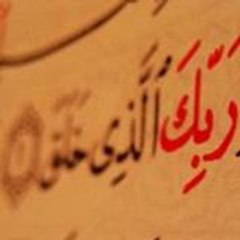 رَبِّكَ ٱلَّذِي خَلَقَ